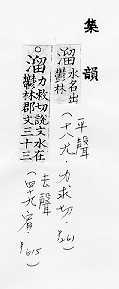 集韻
溜水名出
鬱林
平聲
(十八尤．力求切．P.261)
○溜力救切說文水在
鬱林郡文三十三
去聲
(四十九宥．P.615)